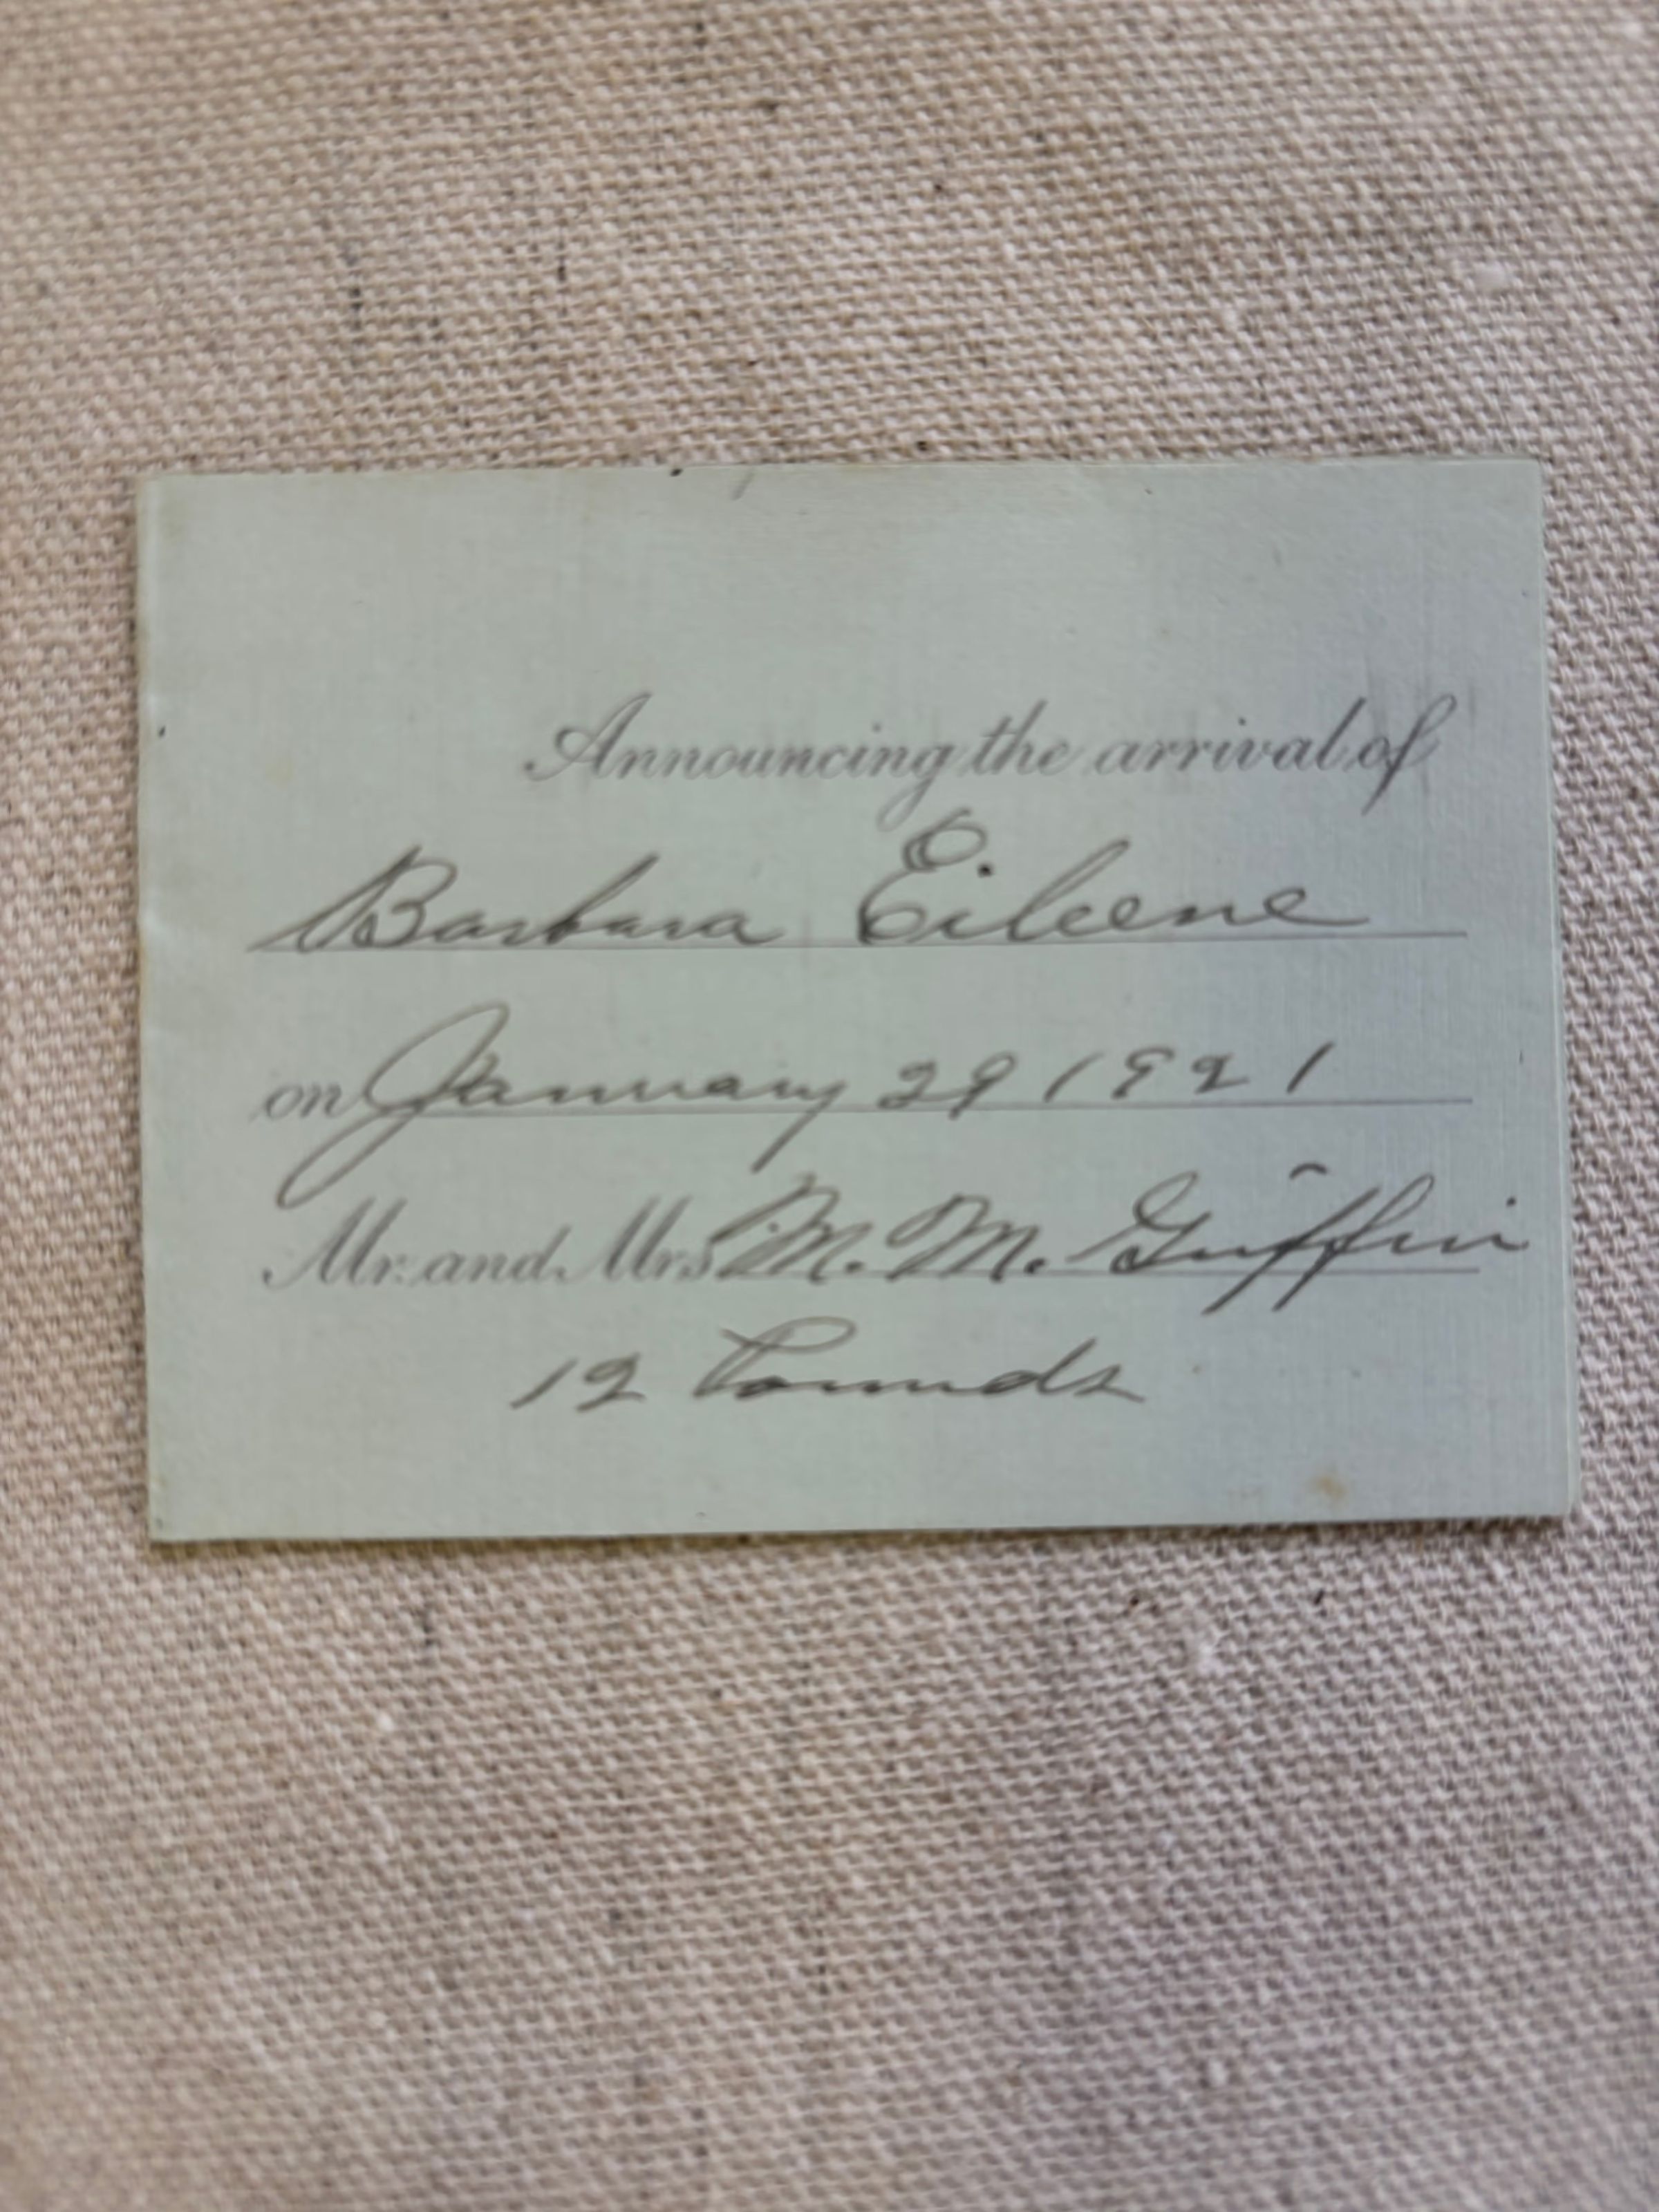 Announcing the arrival of
Barbara Eileene
on January 29 1921
Mr. and Mrs M. M. Griffin
12 Pounds